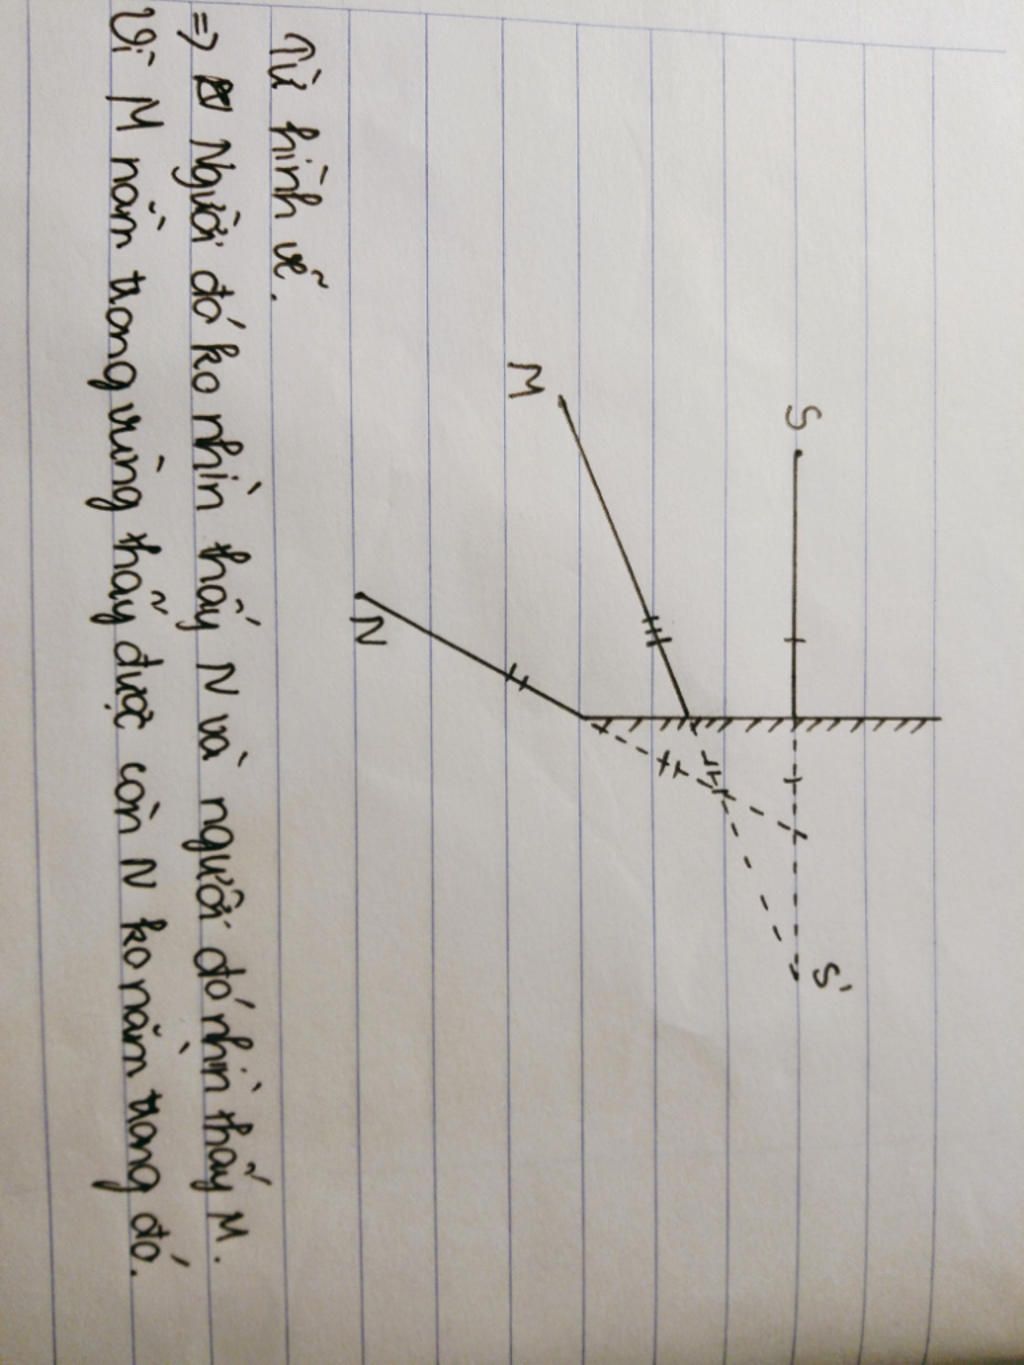 S
S'
M
N
Từ hình vẽ.
=> Người đó ko nhìn thấy N và người đó nhìn thấy M.
Vì M nằm trong vùng thấy được còn N ko nằm trong đó.